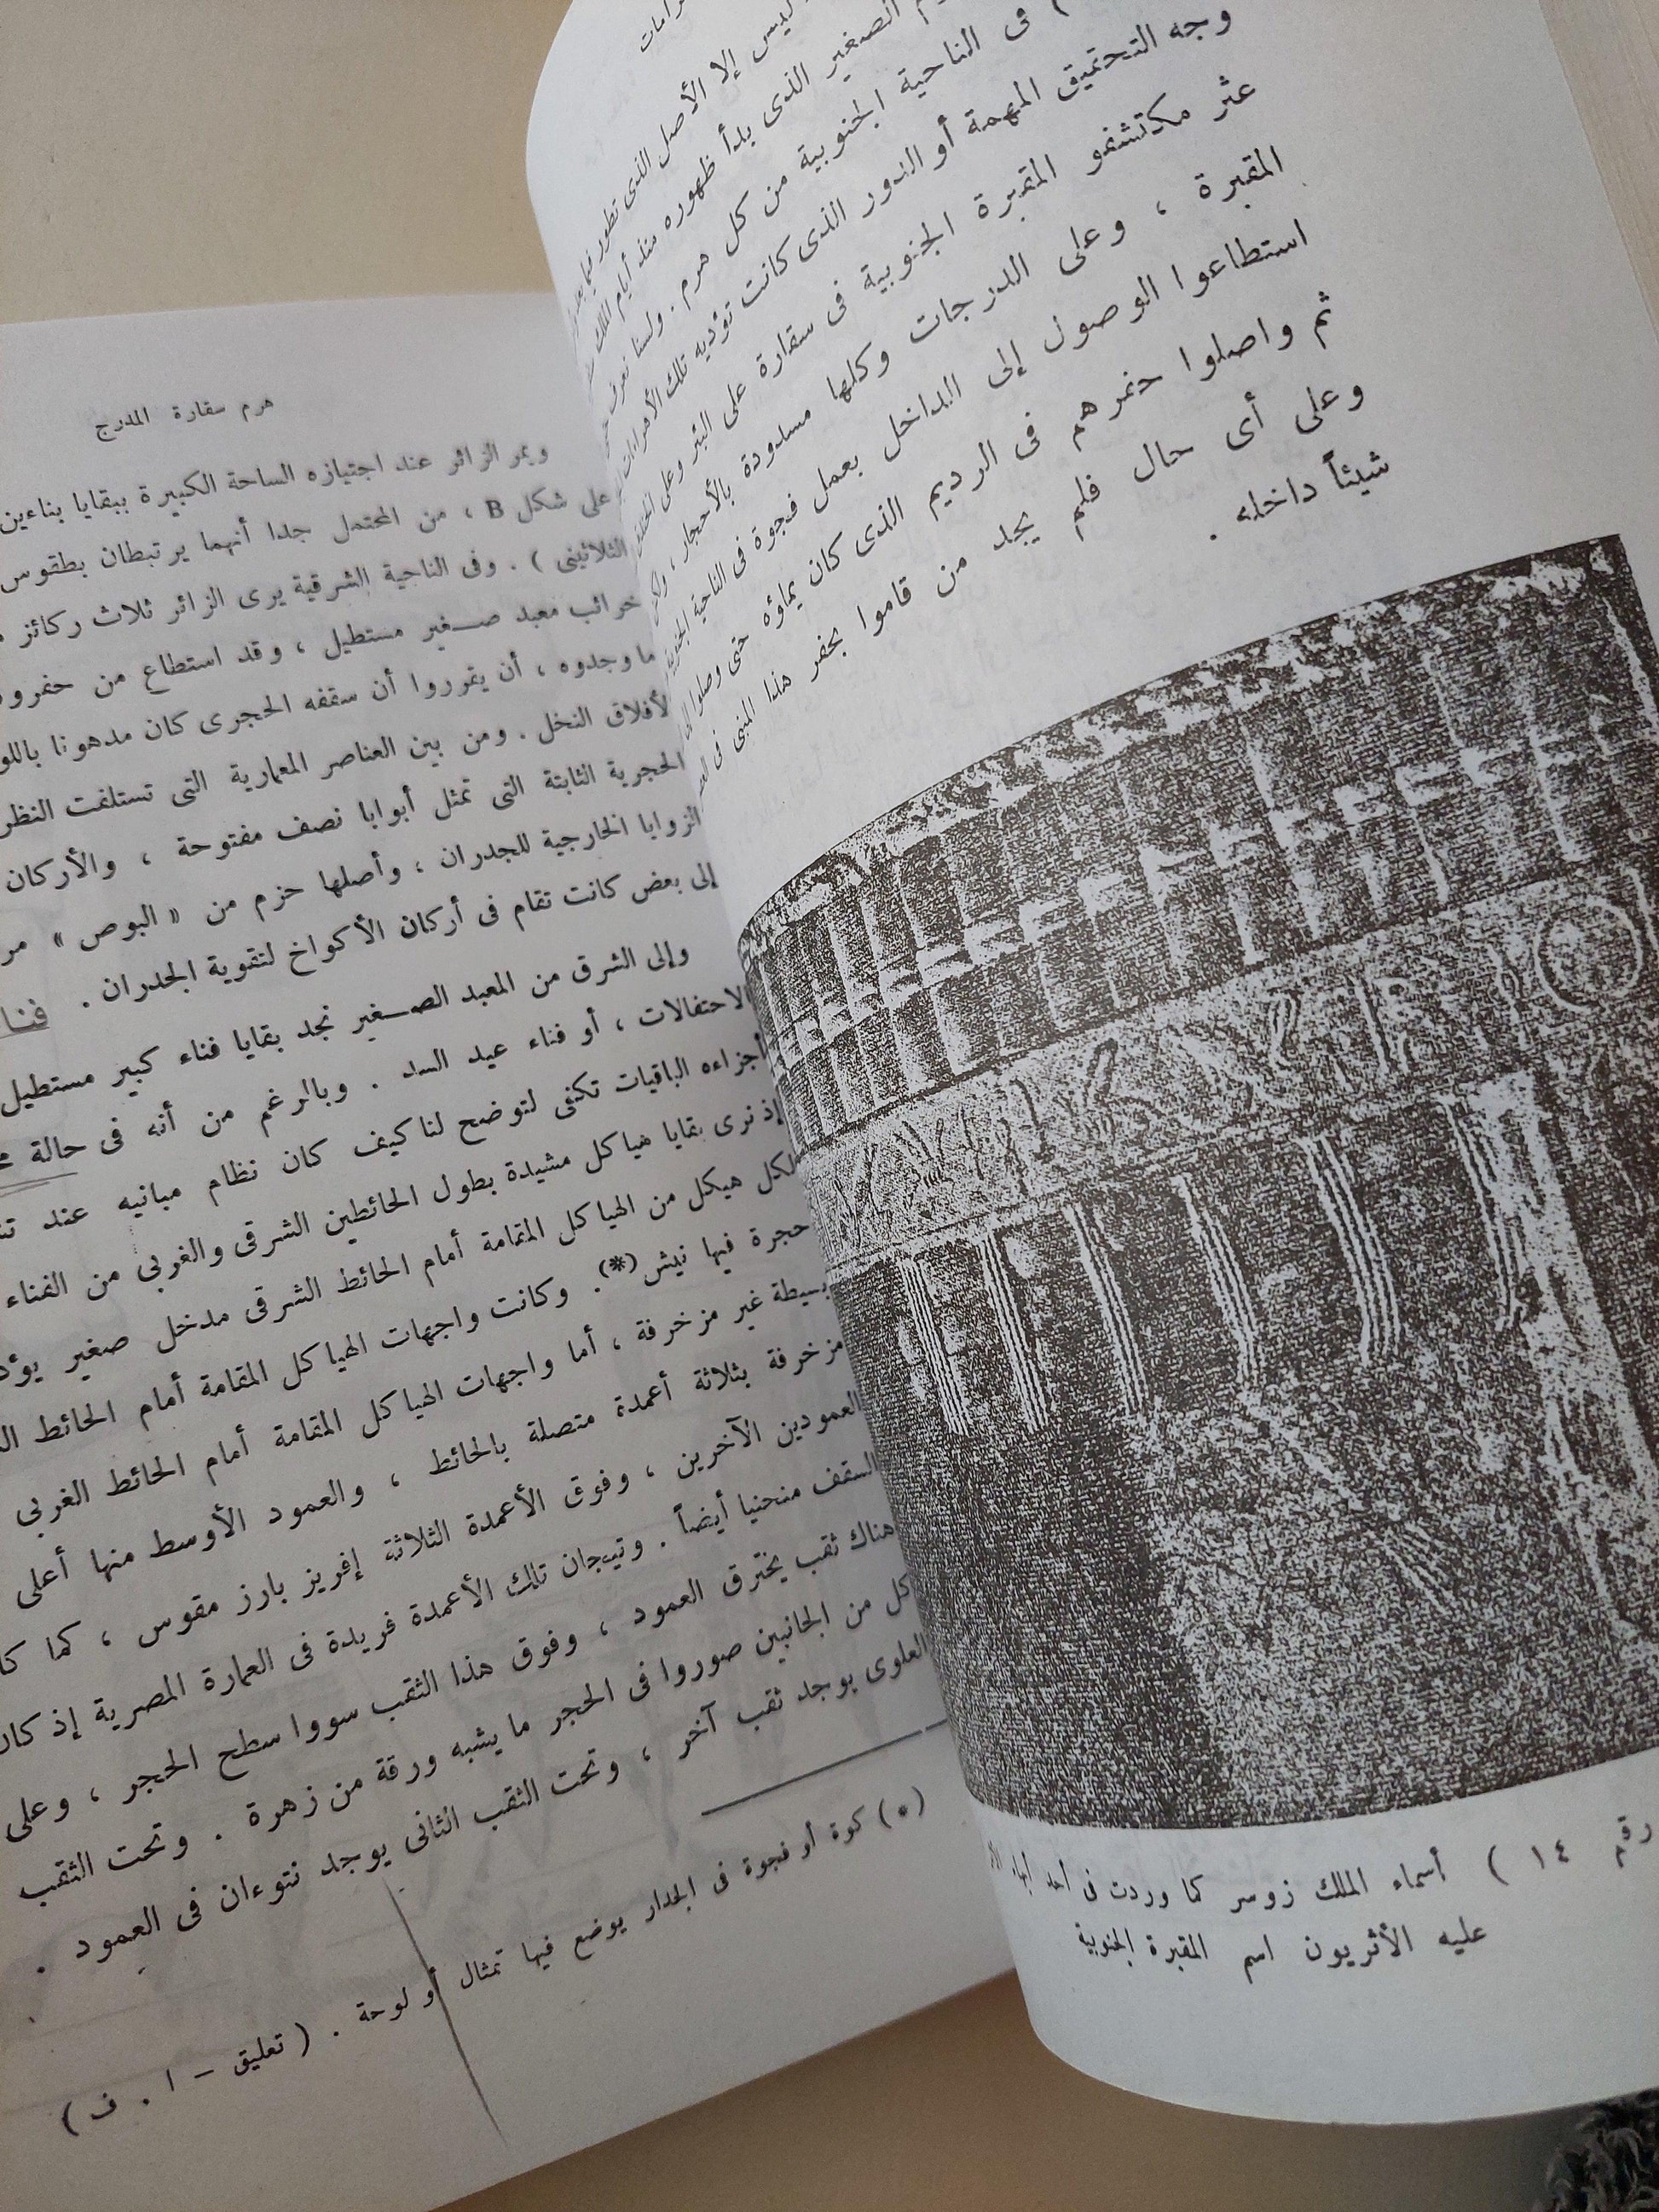 ليس إلا الأصل الذى تطور فيما بعد
الصغير الذى بدأ ظهوره منذ أيام الملك
فى الناحية الجنوبية من كل هرم . ولسنا نعرف
وجه التحقيق المهمة أو الدور الذى كانت تؤديه تلك الأهرامات
عثر مكتشفو المقبرة الجنوبية فى سقارة على البئر وعلى
المقبرة ، وعلى الدرجات وكلها مسدودة بالأحجار ،
استطاعوا الوصول إلى الداخل بعمل فجوة فى الناحية
ثم واصلوا حفرهم فى الرديم الذى كان يملؤه حتى وصلوا
وعلى أى حال فلم يجد من قاموا بحفر هذا المبنى فى
شيئاً داخله .
رقم ١٤ ) أسماء الملك زوسر كما وردت فى أحد
عليه الأثريون اسم المقبرة الجنوبية
هرم سقارة المدرج
ويمر الزائر عند اجتيازه الساحة الكبيرة ببقايا بناءين
على شكل B ، من المحتمل جدا أنهما يرتبطان بطقوس
الثلاثينى ) . وفى الناحية الشرقية يرى الزائر ثلاث ركائز
خرائب معبد صغير مستطيل ، وقد استطاع من حفروه
ما وجدوه ، أن يقرروا أن سقفه الحجرى كان مدهونا باللو
لأفلاق النخل . ومن بين العناصر المعمارية التى تستلفت النظر
الحجرية الثابتة التى تمثل أبوابا نصف مفتوحة ، والأركان
الزوايا الخارجية للجدران ، وأصلها حزم من « البوص » مر
إلى بعض كانت تقام فى أركان الأكواخ لتقوية الجدران .
وإلى الشرق من المعبد الصغير نجد بقايا فناء كبير مستطيل
الاحتفالات ، أو فناء عيد السد . وبالرغم من أنه فى حالة
أجزاءه الباقيات تكفى لتوضح لنا كيف كان نظام مبانيه عند
إذ نرى بقايا هياكل مشيدة بطول الحائطين الشرقى والغربى من الفناء
لكل هيكل من الهياكل المقامة أمام الحائط الشرقى مدخل صغير يؤد
حجرة فيها نيش (*) . وكانت واجهات الهياكل المقامة أمام الحائط
بسيطة غير مزخرفة ، أما واجهات الهياكل المقامة أمام الحائط الغربى
مزخرفة بثلاثة أعمدة متصلة بالحائط ، والعمود الأوسط منها أعلى
العمودين الآخرين ، وفوق الأعمدة الثلاثة إفريز بارز مقوس ، كما كا
السقف منحنيا أيضاً . وتيجان تلك الأعمدة فريدة فى العمارة المصرية إذ كان
هناك ثقب يخترق العمود ، وفوق هذا الثقب سووا سطح الحجر ، وعلى
كل من الجانبين صوروا فى الحجر ما يشبه ورقة من زهرة . وتحت الثقب
العلوى يوجد ثقب آخر ، وتحت الثقب الثانى يوجد نتوءان فى العمود .
(*) كوة أو فجوة فى الجدار يوضع فيها تمثال أو لوحة . ( تعليق - ا . ف )